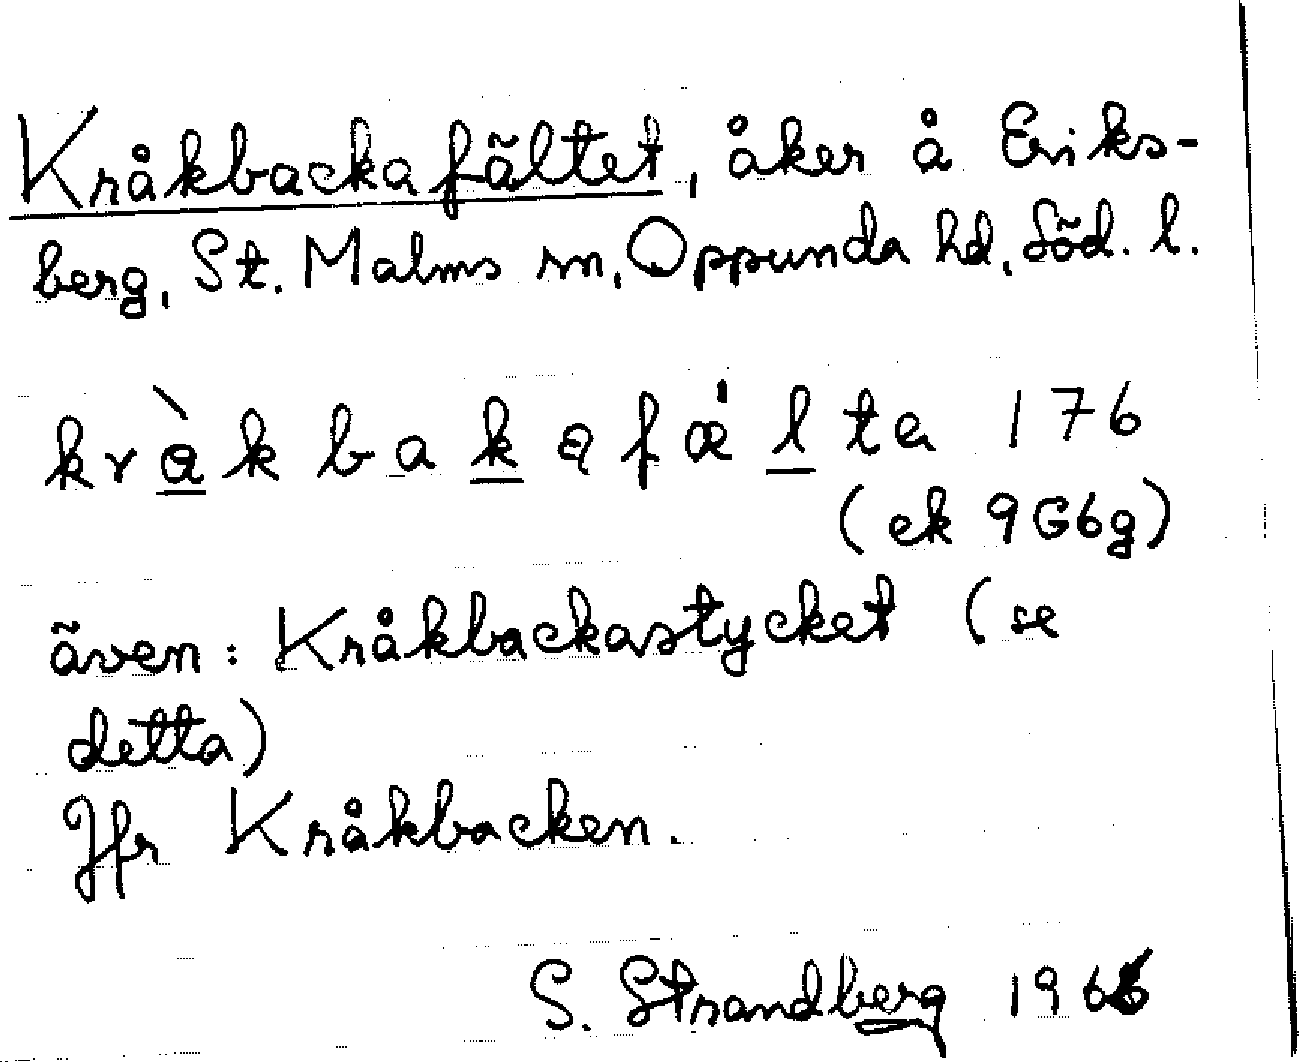 Kråkbackafältet, åker å Eriks-
berg, St. Malms sn, Oppunda hd, Söd. l.
kràkbakafǽlta 176
(ek 9G6g)
även: Kråkbackastycket (se
detta)
Jfr Kråkbacken.
S. Strandberg 1966